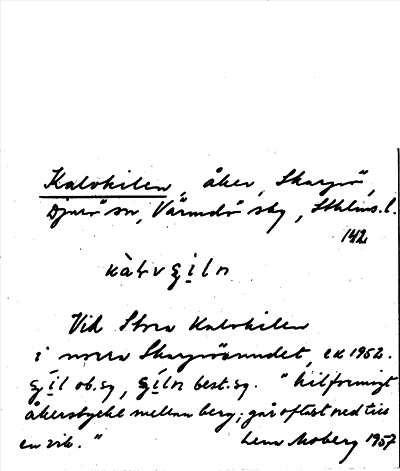 Kalvkilen, åker, Skarpö,
Djurö sn, Värmdö skg, Sthlms. l.
142
Vid Stora Kalvkilen
i norra Skarpösundet, ek 1952.
ob. sg, best. sg. "kilformigt
åkerstycke mellan berg; går oftast ned till
en vik."
Lena Moberg 1957